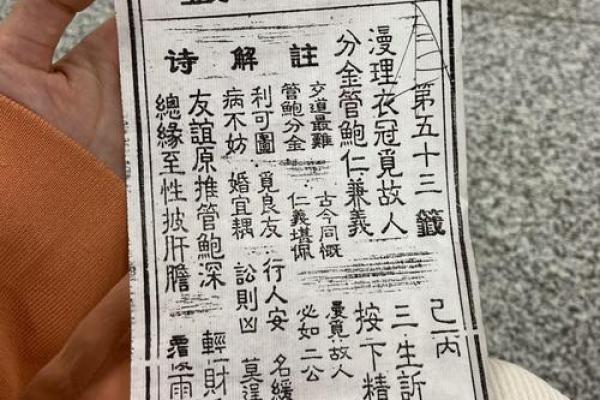 第五十三籤 己丙
漫理衣冠覓故人 三生訴
分金管鮑仁兼義 按下精
註
交道最難 古今同慨 曼覓故人
管鮑分金 仁義堪佩 必如二公
解
利可圖 覓良友 行人安 名緩
病不妨 婚宜耦 訟則凶 莫逞
诗
友誼原推管鮑深 輕財
總緣至性披肝膽 雨